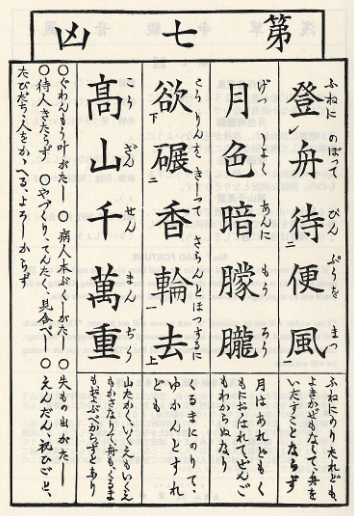 第七凶
ふねに のぼって びん ぷうを まつ
登舟待二便風一
げつ しよく あんに もう ろう
月色暗朦朧
こうりんを きしって さらんとほつするに
欲下碾二香輪一去上
こう ざん せん まん ぢう
高山千萬重
ふねにのりたれども、
よきかぜもなくして、舟を
いだすことならず
月はあれどもく
もにおほれて、ぜんご
もわからぬなり
くるまにのりて、
ゆかんとすれ
ども
山たかく、いくえもいくえ
もかさなりて舟も、くるま
もおよぶべからずとあり
○ぐわんもう叶がたし ○病人本ぶくしがたし ○失もの出がたし
○待人きたらず ○やづくり、てんたく、見合べし ○えんだん、祝ひごと、
たびだち、人をかゝへる、よろしからず